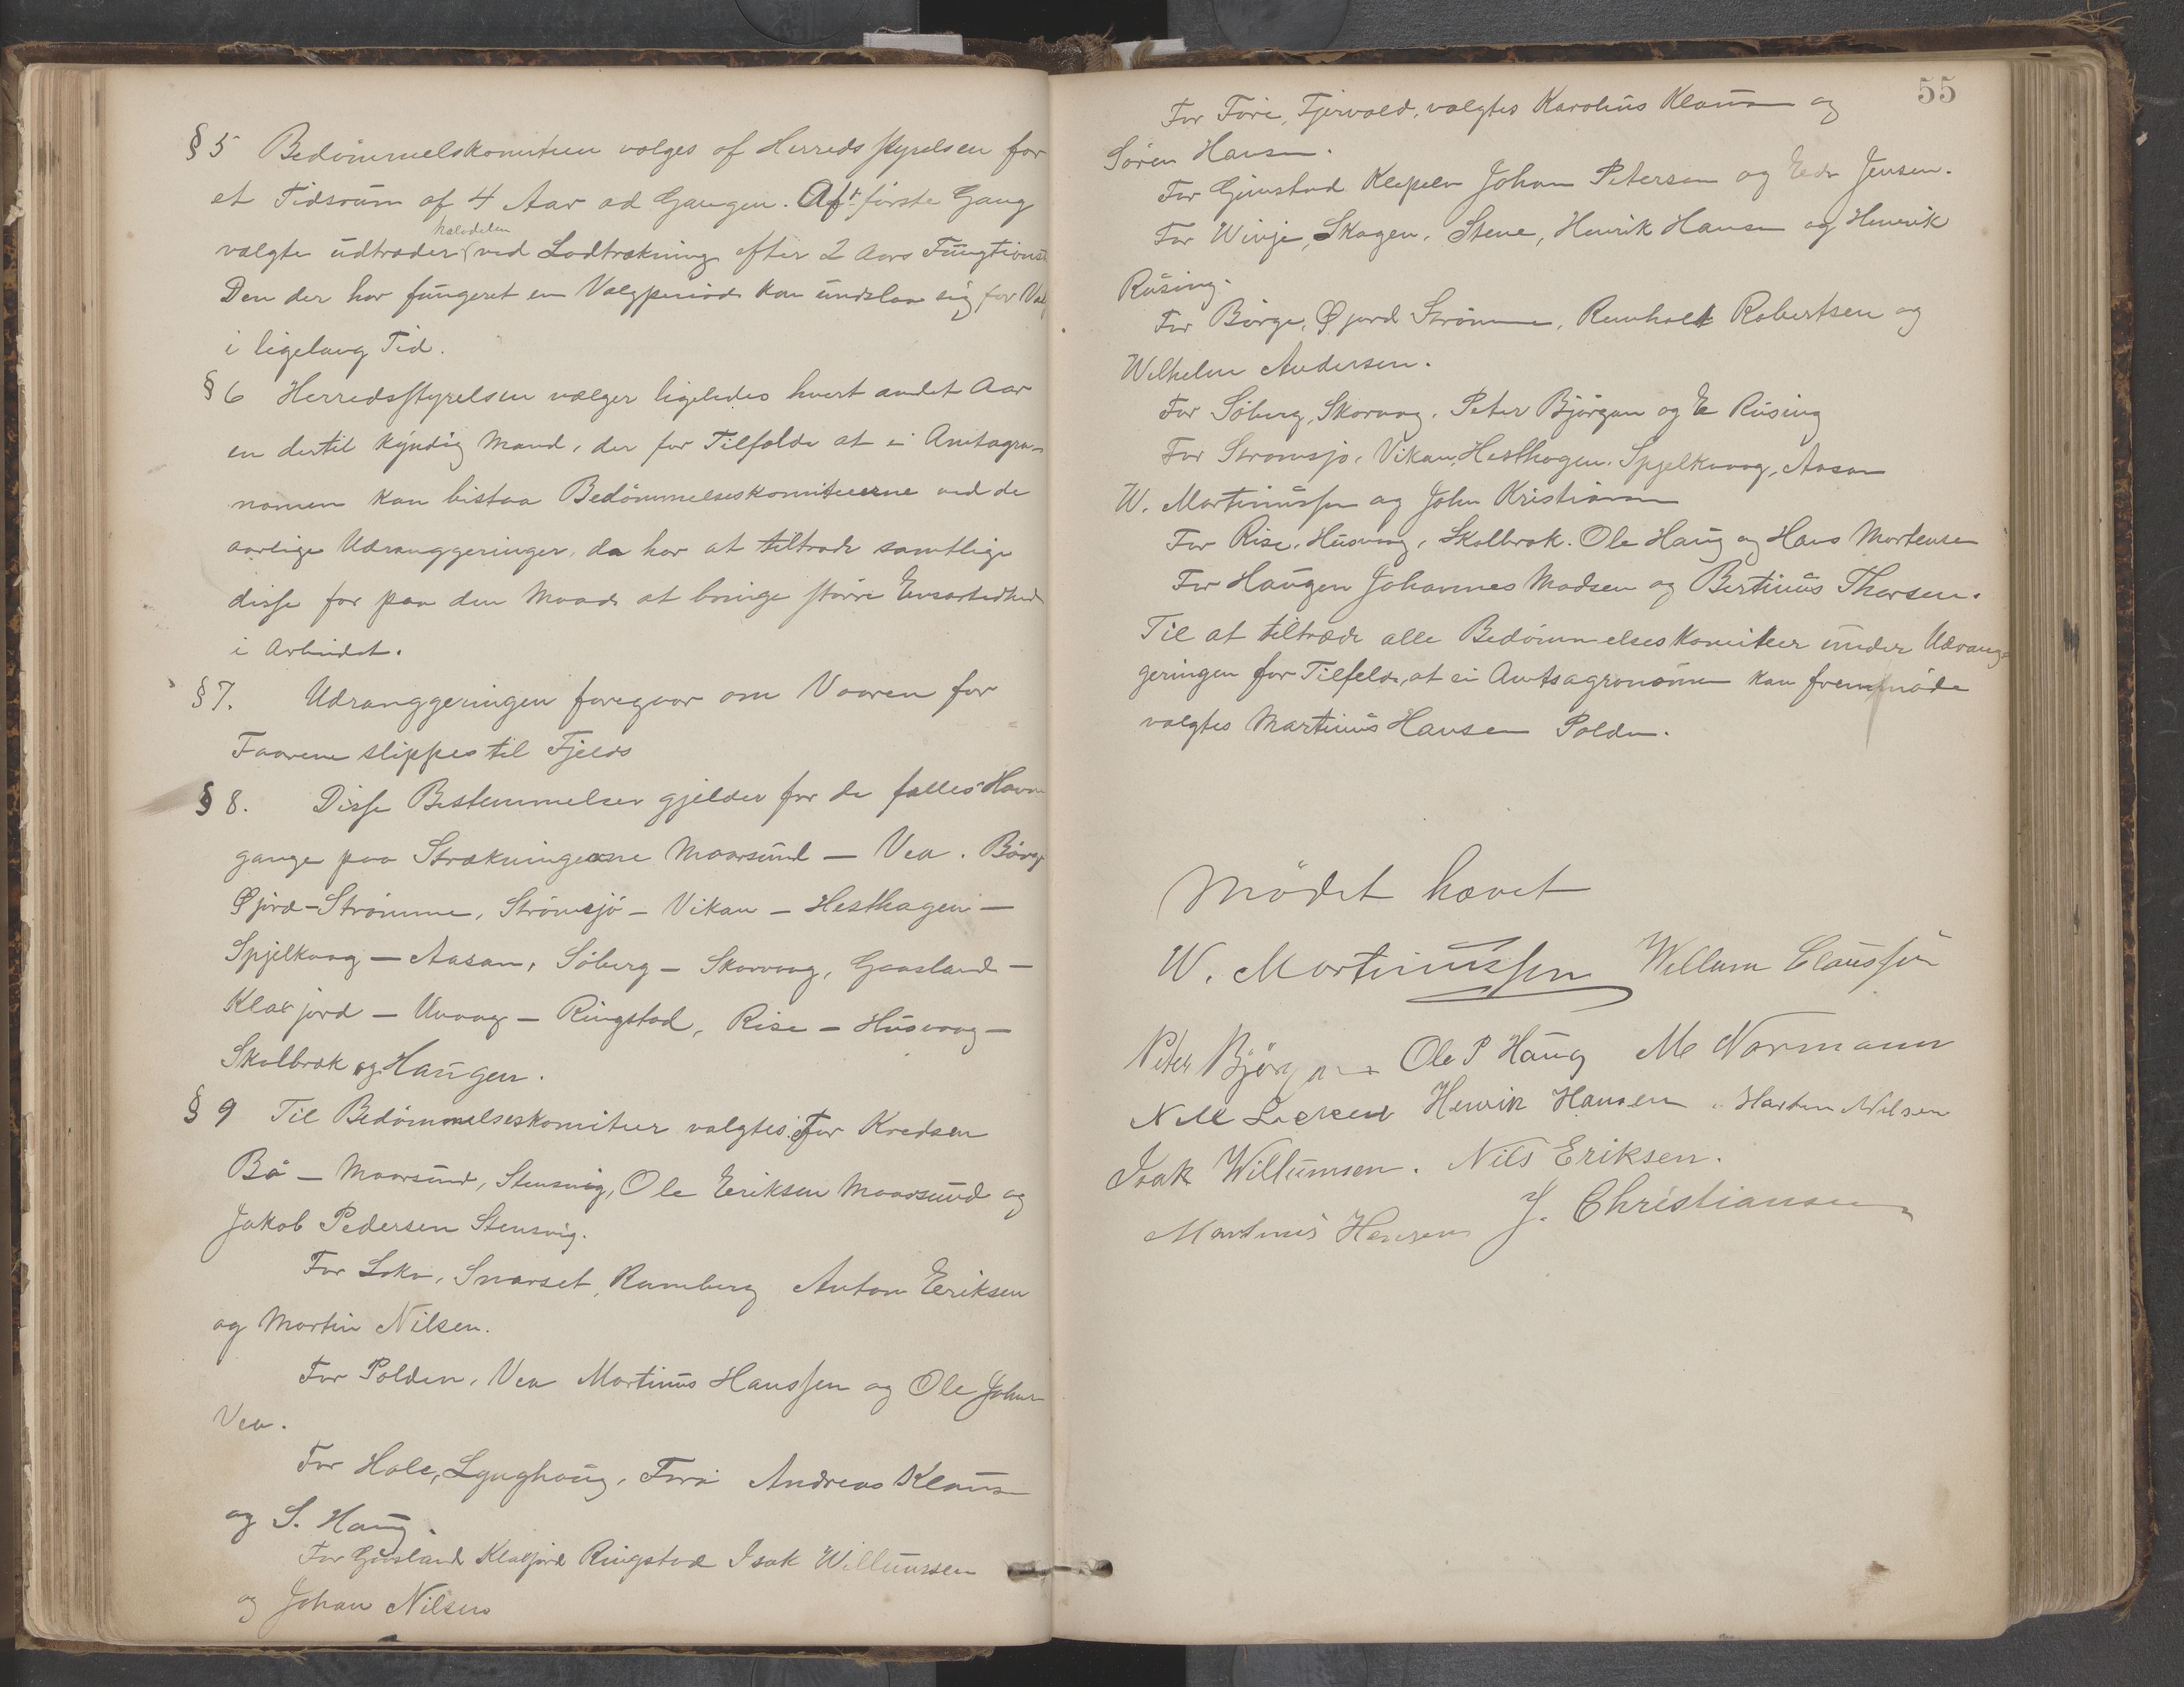 § 5 Bedömmelskomiteen velges af Herredsstyrelsen for
et Tidsrum af 4 Aar ad Gangen. Af første Gang
halvdelen
valgte udtræder ved Lodtrækning efter 2 Aars
Den der har fungeret en Valgperiode kan undslaa sig for
i ligelang Tid.
§ 6 Herredsstyrelsen vælger ligeledes hvert andet Aar
en dertil kyndig Mand, der for Tilfælde at ei Amtagro-
nomen kan bistaa Bedömmelseskomiteerne ved de
aarlige Udranggeringer, da har at tiltræde samtlige
disse for paa den Maade at bringe større Ensartethed
i Arbeidet.
§ 7. Udranggeringen foregaar om Vaaren før
Faarene slippes til Fjelds
§ 8. Disse Bestemmelser gjelder for de fælles Havne
gange paa Strækningerne Maarsund — Vea. Börge
Øjord - Strömme, Strömsjö - Vikan - Hesthagen -
Spjelkvaag - Aasan, Söberg - Skorvaag, Gaasland -
Klakjord - Uvaag - Ringstad, Rise - Husvaag -
Skalbrak og Haugen.
§ 9 Til Bedömmelseskomiteer valgtes: For Kredsen
Bö - Maarsund, Stensvig, Ole Eeriksen Maarsund og
Jakob Pedersen Stensvig.
For Snarset, Ramberg Anton Eeriksen
og Martin Nilsen.
For Polden, Vea Martinus Hanssen og Ole
Vea.
For Hole, Lynghaug, Andreas
og S. Haug.
For Gaasland Klakjord Ringstad Isak Willumsen
og Johan Nilsen
55
For Före, Fjervold, valgtes Karolius og
Sören Hansen.
For Gimstad Johan Petersen og Jensen.
For Winje, Skagen, Steine, Henrik Hansen og Henrik
Rüsing.
For Börge, Øjord Strömme, Robertsen og
Wilhelm Andersen.
For Söberg, Skorvaag, Peter Björgan og E Rüsing
For Strömsjö, Vikan, Hesthagen, Spjelkvaag, Aasan
W. Martinussen og John Kristiansen
For Rise, Husvaag, Skalbrak. Ole Haug og Hans Mortensen
For Haugen Johannes Madsen og Bertinus Thorsen.
Til at tiltræde alle Bedömmelseskomiteer under Udrang-
geringen for Tilfelde, at ei Amtsagronomen kan fremmöde
valgtes Martinus Hansen Polden.
Mödet hævet
W. Martinussen Willum Claussen
Peter Björgan Ole P Haug M Normann
N M Henrik Hansen Martin Nilsen
Isak Willumsen. Nils Eriksen.
Martinus Hansen J. Christiansen